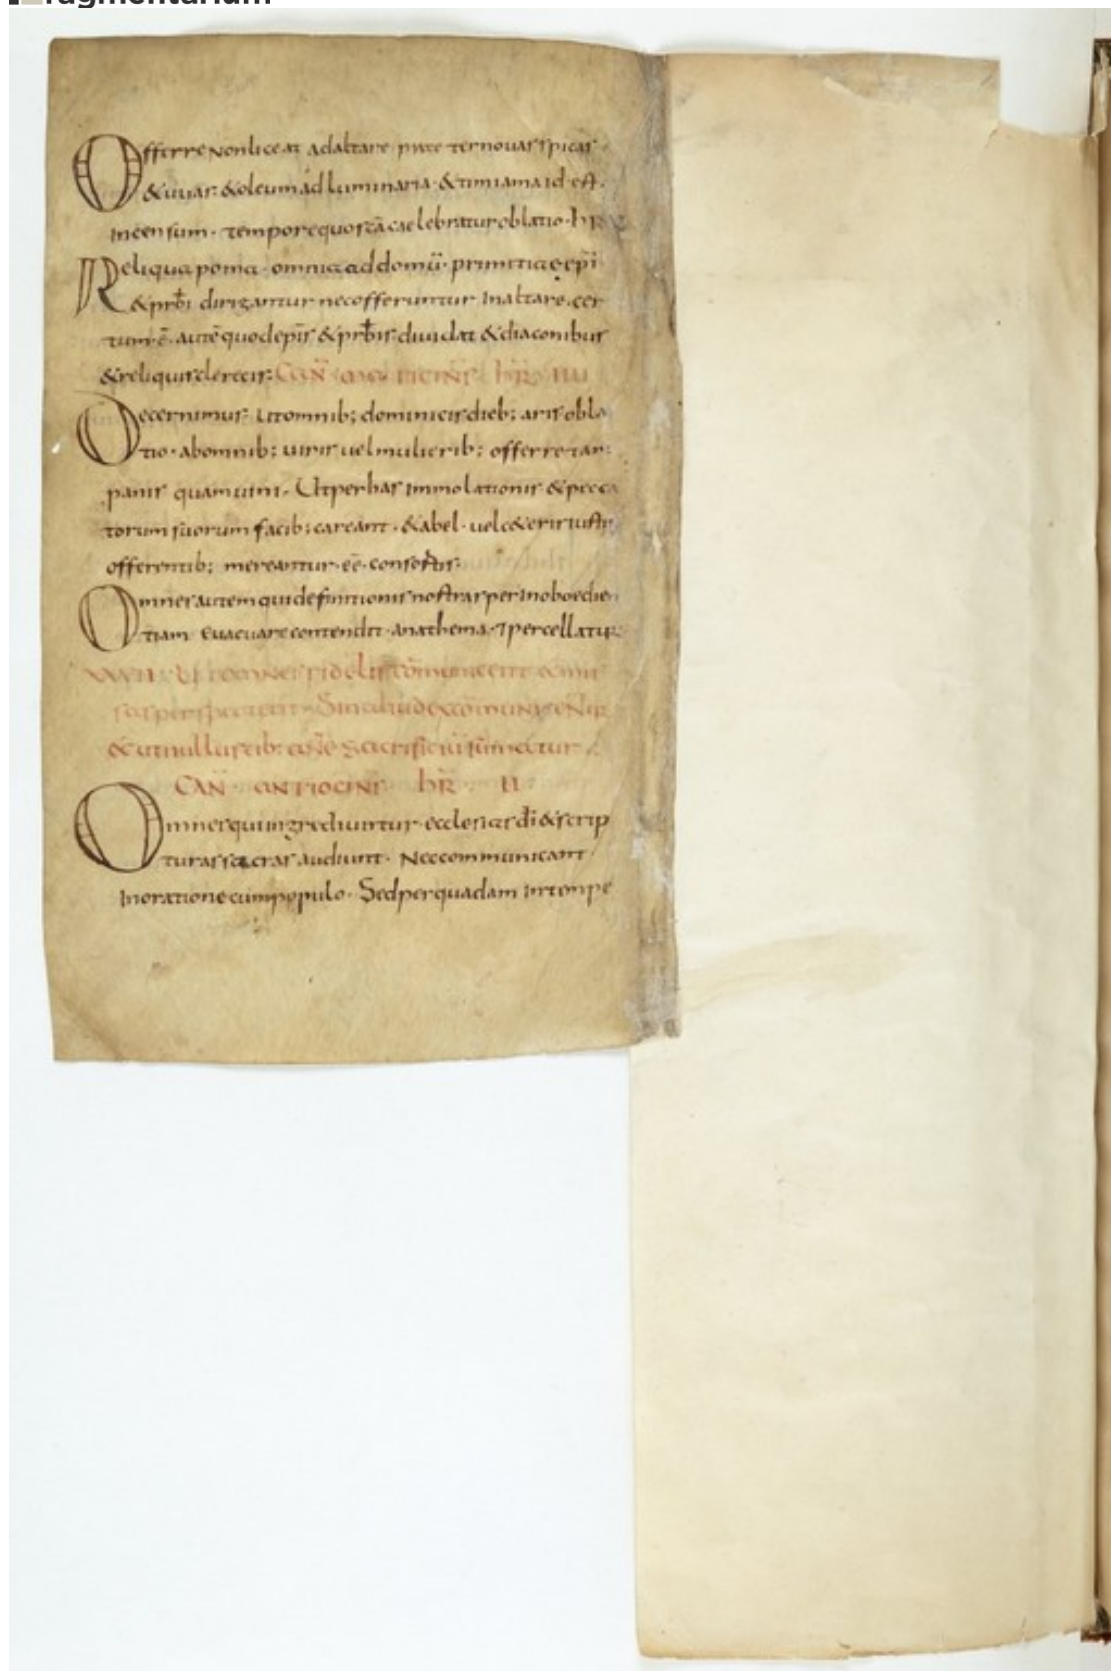 Offerre non liceat ad altare preter novas spicas
& uuas & oleum ad luminaria & timiama id est
incensum tempore quo scā caelebratur oblatio
Reliqua poma omnia ad domū primitiae epī
& prbī dirigantur nec offeruntur in altare cer
tum ē autē quod epīs & prbīs diuidat & diaconibus
& reliquis clerecis CAN hR IIII
Decernimus ut omnib; dominicis dieb; aris obla
tio ab omnib; uiris uel mulierib; offerre tam
panis quam uini Ut per has immolationis & pecca
torum suorum facib; careant & abel uel
offerentib; mereantur eē consortis
Omnes autem qui definitionis nostras per inoboedien
tiam euacuare contendit anathema percellatur
fidelis cōmunicent
& ut nullus sacrificiū
CAN ANTIOCINS hR II
Omnes qui ingrediuntur ecclesias dī & scrip
turas sacras audiunt Nec communicant
In oratione cum populo Sed per quadam intempe